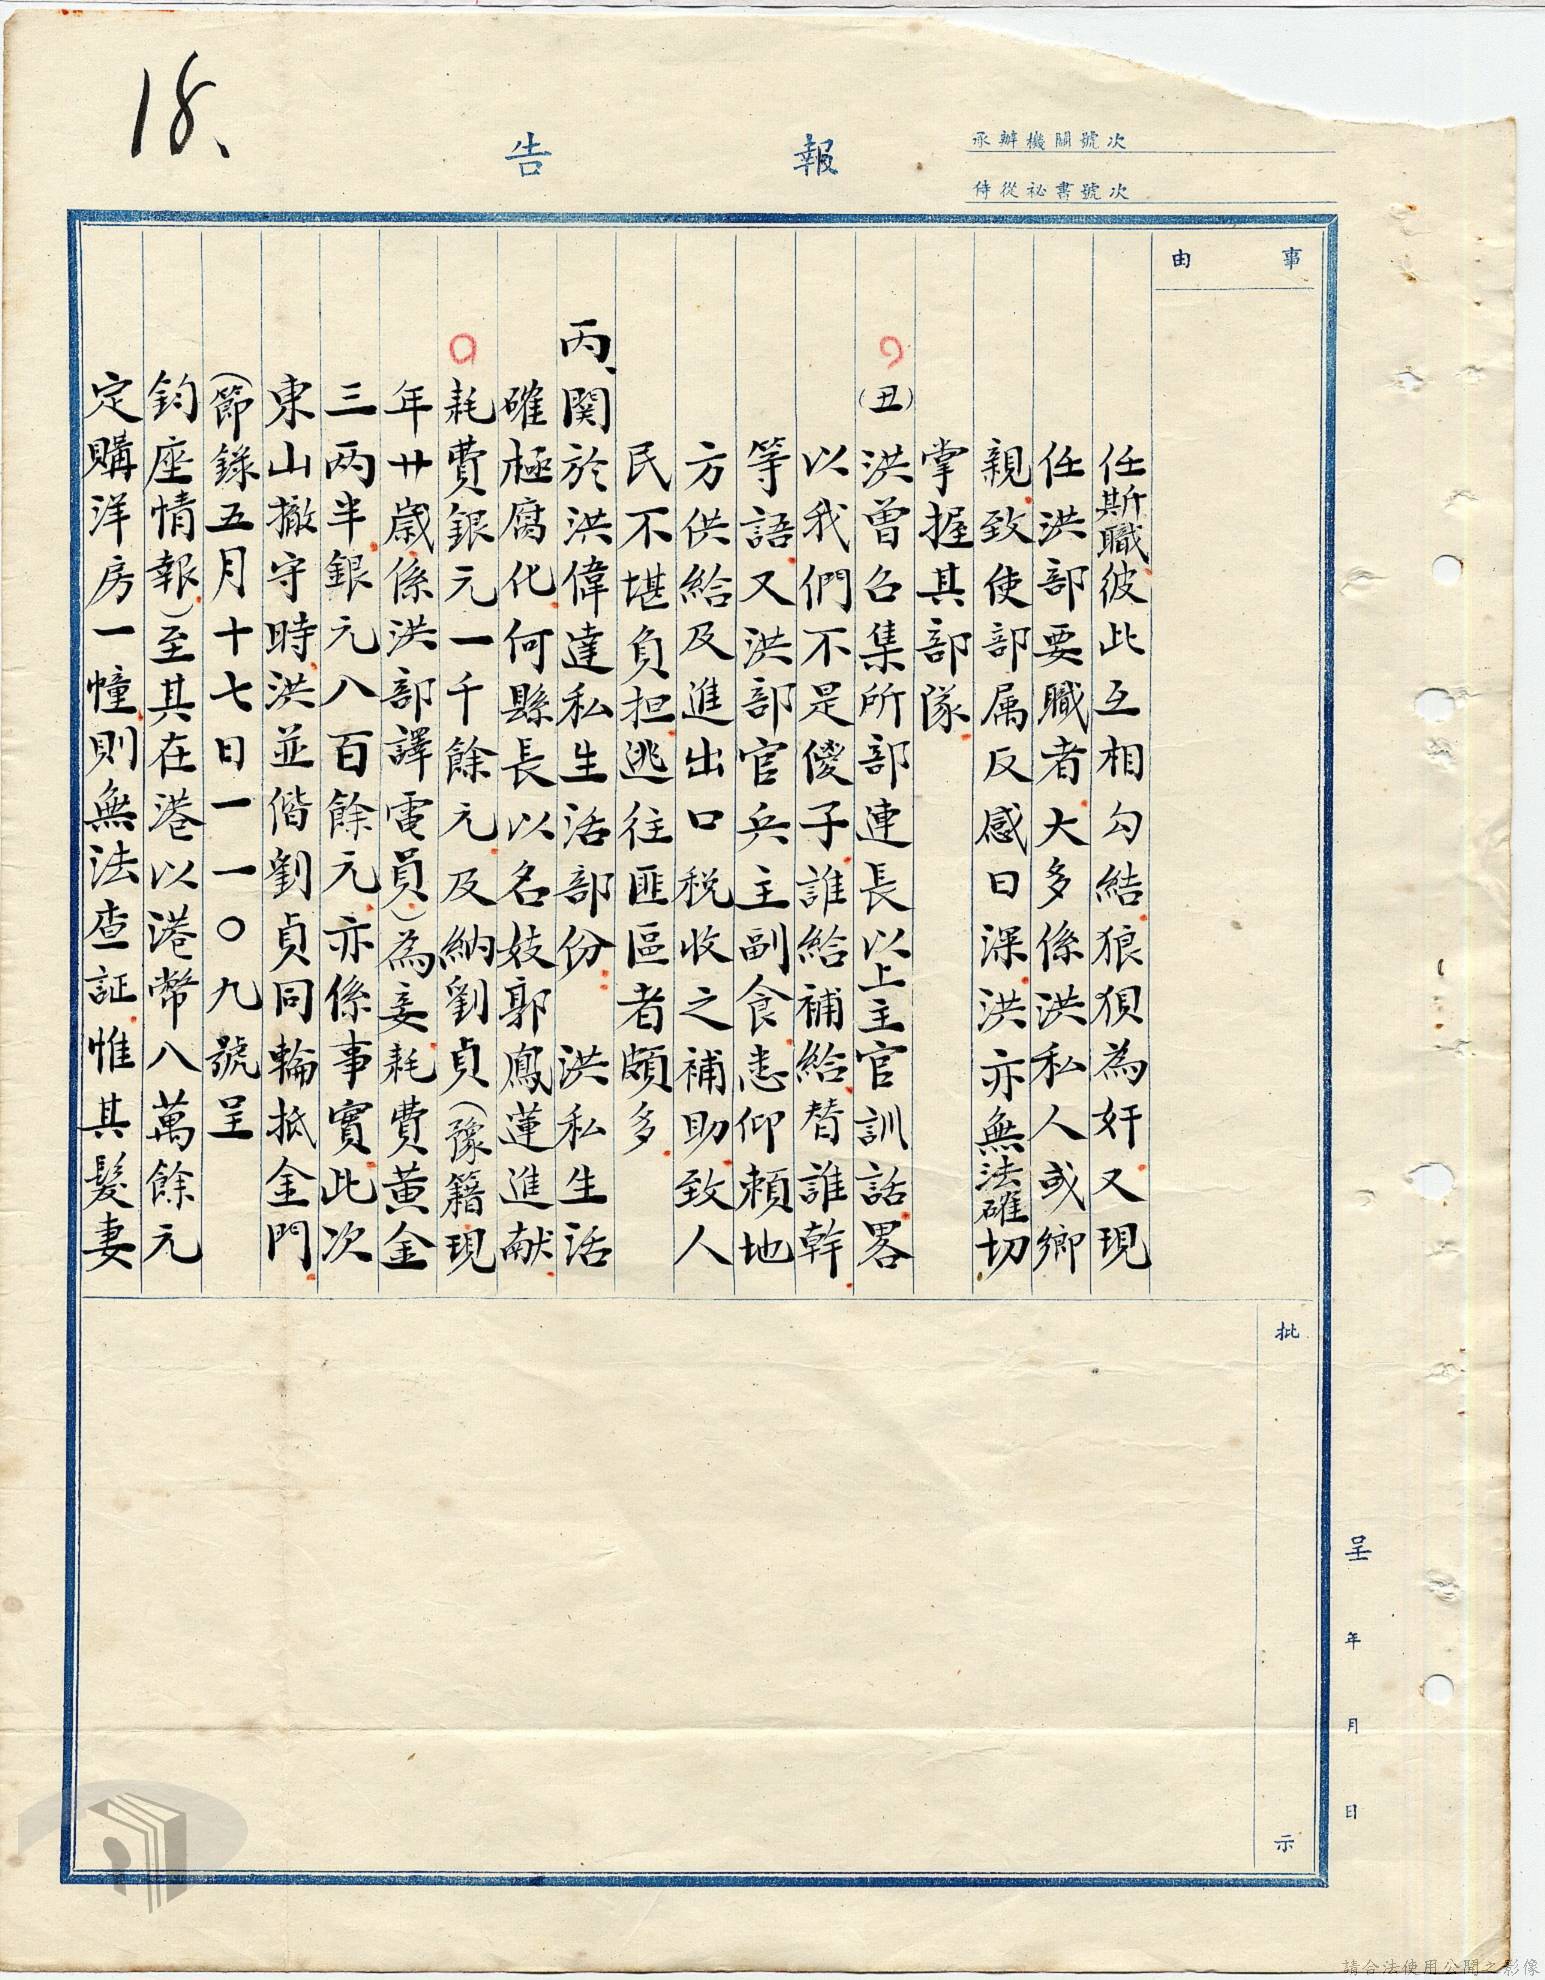 18、
報告
承辦機關號次
侍從祕書號次
事由
任斯職彼此互相勾結狼狽為奸又現
任洪部要職者大多係洪私人或鄉
親致使部属反感日深洪亦無法確切
掌握其部隊
(丑)洪曾召集所部連長以上主官訓話畧
以我們不是傻子誰給補給替誰幹
等語又洪部官兵主副食悉仰賴地
方供給及進出口税收之補助致人
民不堪負担逃往匪區者頗多
丙、関於洪偉達私生活部份 洪私生活
確極腐化何縣長以名妓郭鳳蓮進献
耗費銀元一千餘元及納劉貞(豫籍現
年廿歲係洪部譯電員)為妾耗費黄金
三两半銀元八百餘元亦係事實此次
東山撤守時洪並偕劉貞同輪抵金門
(節錄五月十七日一一〇九號呈
鈞座情報)至其在港以港幣八萬餘元
定購洋房一幢則無法查証惟其髮妻
批示
呈 年 月 日
請合法使用公開之影像